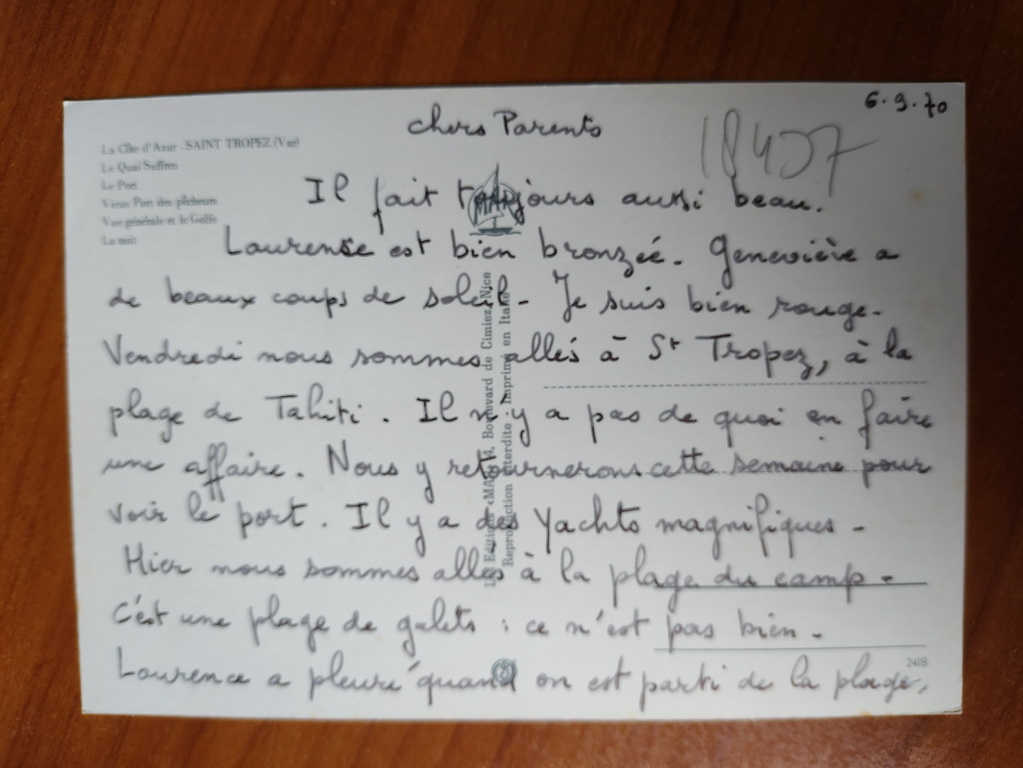 6.9.70
chers Parents
18407
La Côte d'Azur - SAINT TROPEZ (Var)
Le Quai Suffren
Le Port
Vieux Port des pêcheurs
Vue générale et le Golfe
La nuit
Il fait toujours aussi beau.
Laurence est bien bronzée. Geneviève a
de beaux coups de soleil. Je suis bien rouge.
Vendredi nous sommes allés à St Tropez, à la
plage de Tahiti. Il n'y a pas de quoi en faire
une affaire. Nous y retournerons cette semaine pour
voir le port. Il y a des yachts magnifiques.
Hier nous sommes allés à la plage du camp.
c'est une plage de galets : ce n'est pas bien.
Laurence a pleuré quand on est parti de la plage.
Boulevard de Cimiez, Nice
Reproduction interdite - Imprimé en Italie
MAR
2418